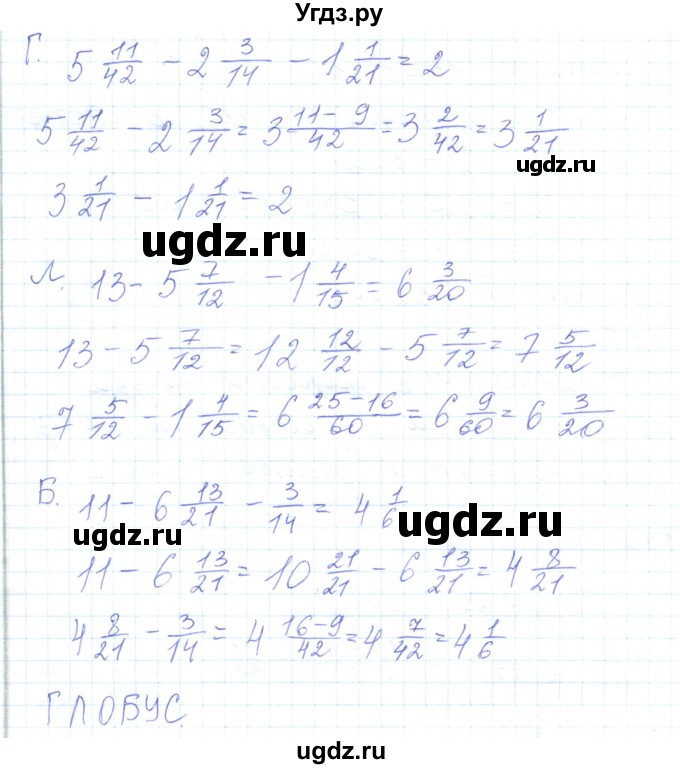 Угдз.ру
Г. 5 11/42 − 2 3/14 − 1 1/21 = 2
5 11/42 − 2 3/14 = 3 11−9/42 = 3 2/42 = 3 1/21
ugdz.ru
3 1/21 − 1 1/21 = 2
ugdz.ru
Л. 13 − 5 7/12 − 1 4/15 = 6 3/20
13 − 5 7/12 = 12 12/12 − 5 7/12 = 7 5/12
7 5/12 − 1 4/15 = 6 25−16/60 = 6 9/60 = 6 3/20
Б. 11 − 6 13/21 − 3/14 = 4 1/6
ugdz.ru ugdz.ru
11 − 6 13/21 = 10 21/21 − 6 13/21 = 4 8/21
4 8/21 − 3/14 = 4 16−9/42 = 4 7/42 = 4 1/6
ГЛОБУС
ugdz.ru